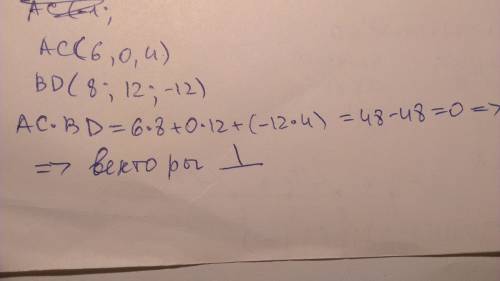 AC(1;
AC(6,0,4)
BD(8; 12; -12)
AC·BD = 6·8+0·12+(-12·4) = 48-48=0 =>
=> векторы ⊥